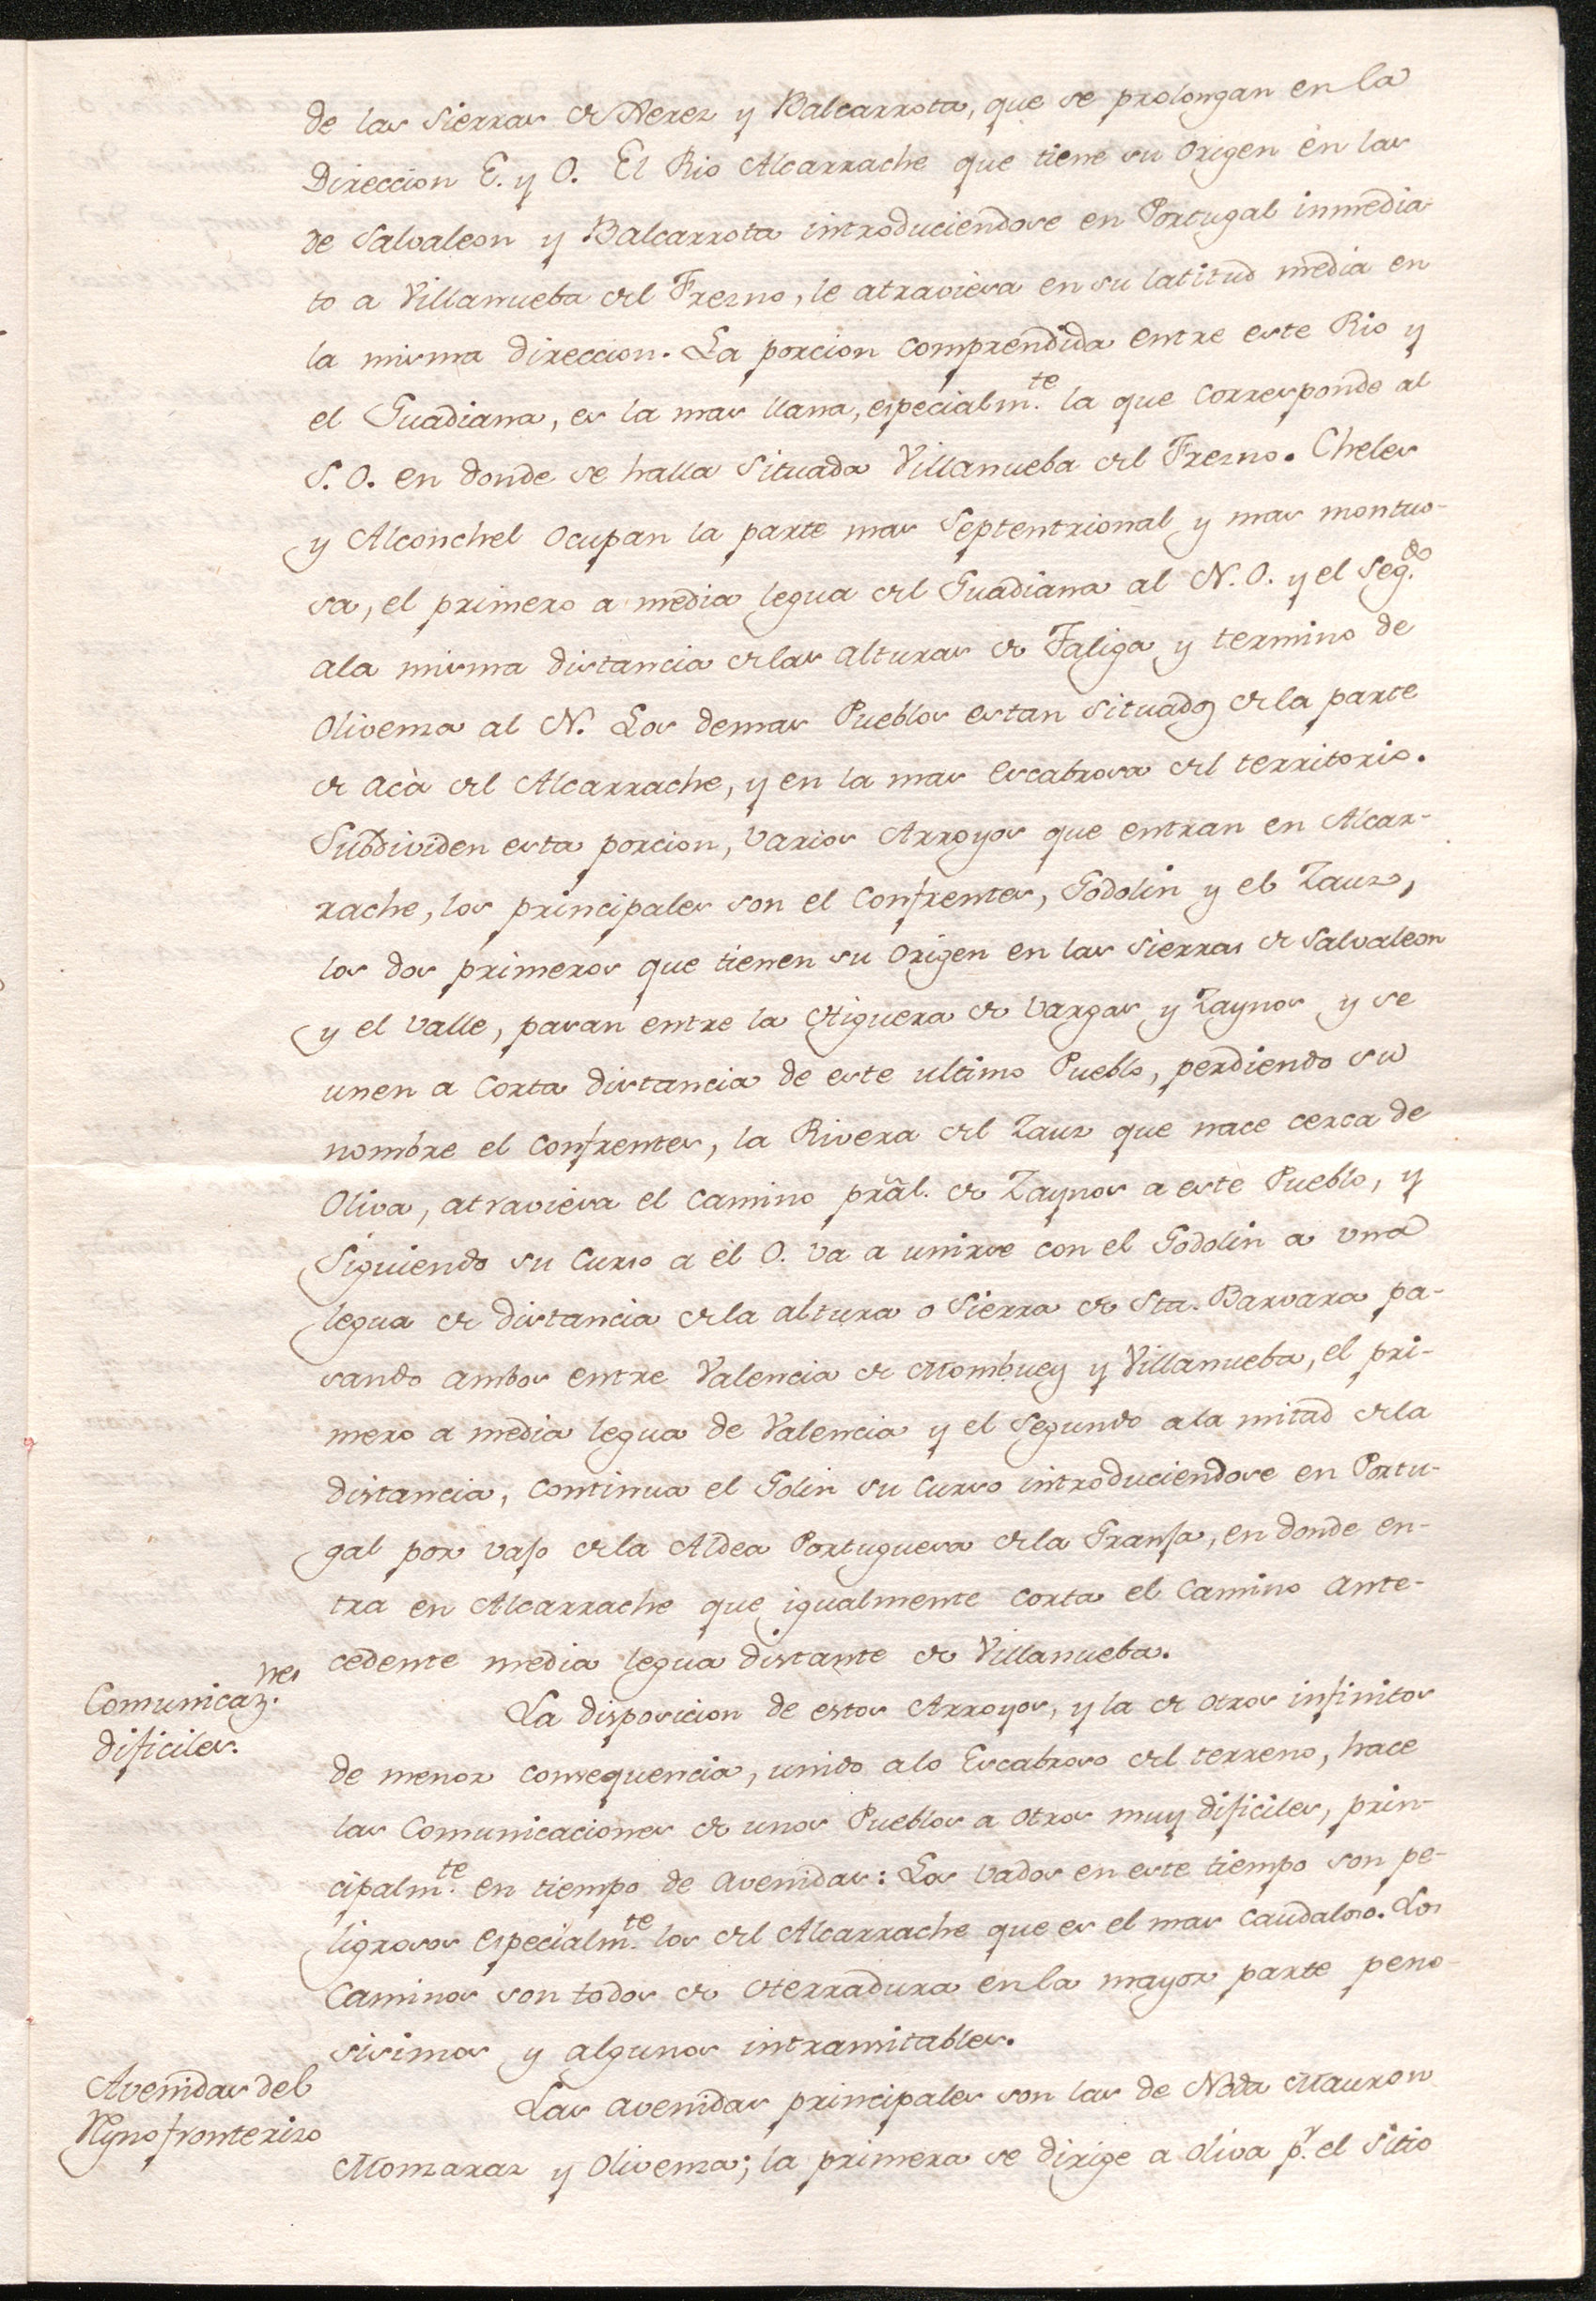 de las Sierras de Xerez y Balcarrota, que se prolongan en la
Direccion E. y O. El Rio Alcarrache que tiene su Origen en las
de Salvaleon y Balcarrota introduciendose en Portugal inmedia-
to a Villanueba del Fresno, le atraviesa en su latitud media en
la misma direccion. La porcion comprendida entre este Rio y
el Guadiana, es la mas llana, especialm.te la que corresponde al
S. O. en donde se halla Situada Villanueba del Fresno. Cheles
y Alconchel Ocupan la parte mas Septentrional y mas montuo-
sa, el primero a media legua del Guadiana al N. O. y el Seg.do
ala misma distancia delas alturas de Faliga y termino de
Olivenza al N. Los demas Pueblos estan situados dela parte
de acà del Alcarrache, y en la mas Escabrosa del territorio.
Subdividen esta porcion, varios Arroyos que entran en Alcar-
rache, los principales son el Confrentes, Godolin y el Zauz,
los dos primeros que tienen su Origen en las Sierras de Salvaleon
y el Valle, pasan entre la Higuera de Vargas y Zaynos y se
unen a Corta distancia de este ultimo Pueblo, perdiendo su
nombre el Confrentes, la Rivera del Zauz que nace cerca de
Oliva, atraviesa el Camino prãl. de Zaynos a este Pueblo, y
Siguiendo su Curso a él O. va a unirse con el Godolin a una
legua de distancia dela altura o Sierra de Sta. Barvara pa-
sando ambos entre Valencia de Mombuey y Villanueba, el pri-
mero a media legua de Valencia y el Segundo ala mitad dela
distancia, continua el Golin su Curso introduciendose en Portu-
gal por vajo dela Aldea Portuguesa dela Granja, en donde en-
tra en Alcarrache que igualmente corta el Camino ante-
cedente media legua distante de Villanueba.
Comunicaz.nes
dificiles.
La disposicion de estos Arroyos, y la de otros infinitos
de menor consequencia, unido alo Escabroso del terreno, hace
las Comunicaciones de unos Pueblos a otros muy dificiles, prin-
cipalm.te en tiempo de avenidas: Los vados en este tiempo son pe-
ligrosos especialm.te los del Alcarrache que es el mas caudaloso. Los
Caminos son todos de Herradura en la mayor parte peno-
sisimos y algunos intransitables.
Avenidas del
Rȳno fronterizo
Las avenidas principales son las de Nȏda Mauron
Monzaraz y Olivenza; la primera se dirige a Oliva p.r el Sitio